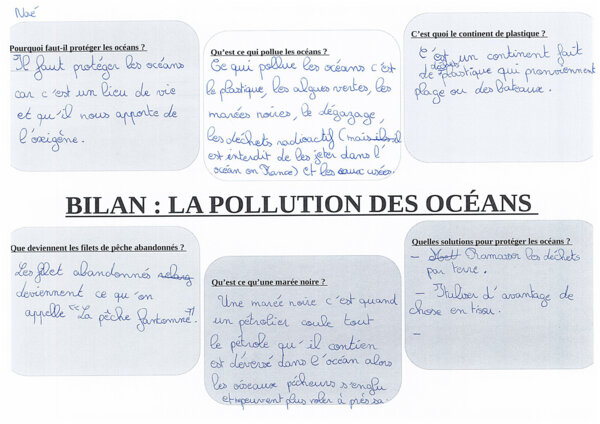 Noé
Pourquoi faut-il protéger les océans ?
Il faut protéger les océans
car c'est un lieu de vie
et qu'il nous apporte de
l'oxigène.
Qu'est ce qui pollue les océans ?
Ce qui pollue les océans c'est
le plastique, les algues vertes, les
marées noires, le dégazage,
les déchets radioactif (mais ils il
est interdit de les jeter dans l'
océan en France) et les eaux usées.
C'est quoi le continent de plastique ?
C'est un continent fait
de déchets plastique qui pronviennent
plage ou des bateaux.
BILAN : LA POLLUTION DES OCÉANS
Que deviennent les filets de pêche abandonnés ?
Les filet abandonnés
deviennent ce qu'on
appelle "La pêche fantome".
Qu'est ce qu'une marée noire ?
Une marée noire c'est quand
un pétrolier coule tout
le pétrole qu'il contien
est déversé dans l'océan alors
les oiseaux pécheurs s'englu
et peuvent plus voler à près sa.
Quelles solutions pour protéger les océans ?
- Ramasser les déchets
par terre.
- Utuliser d'avantage de
chose en tissu.
-